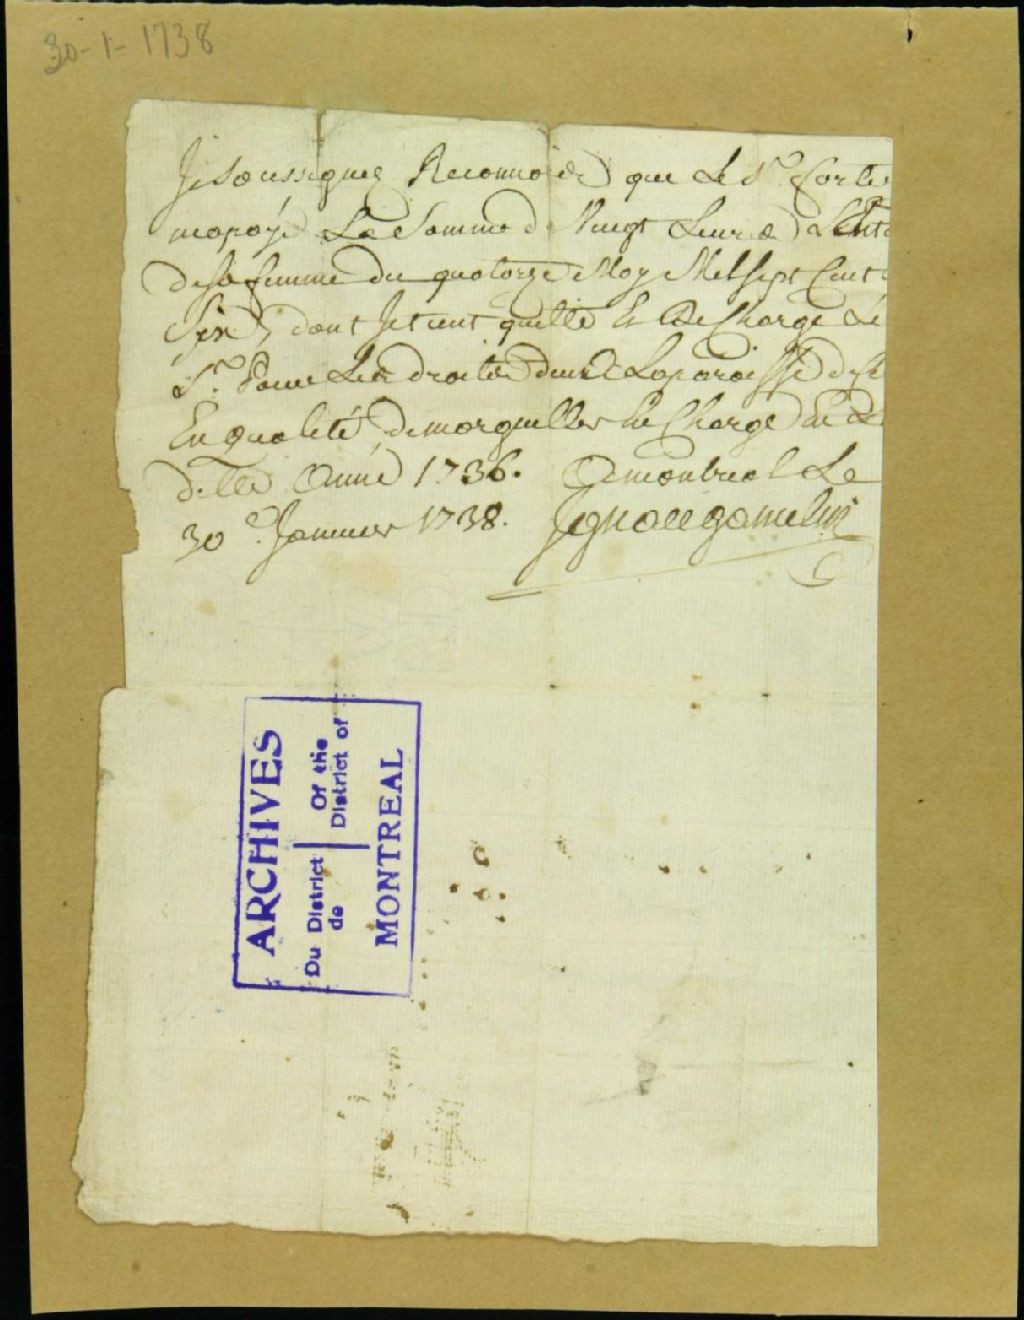 30-1-1738
Je Soussigné Reconnois que Le Sr. Cortie
mapayé La Somme de Vingt Livres
de sa femme du quatorze May Mil Sept Cent
Six, dont Je tient quitte Et De Charge Le
Sr. Pour Les droites de La paroisse
En qualité de marguillier En Charge de L
ditte Année 1736. A monreal Le
30e. Janvier 1738. Ignace gamelin
ARCHIVES
Du District Of the
de District of
MONTREAL